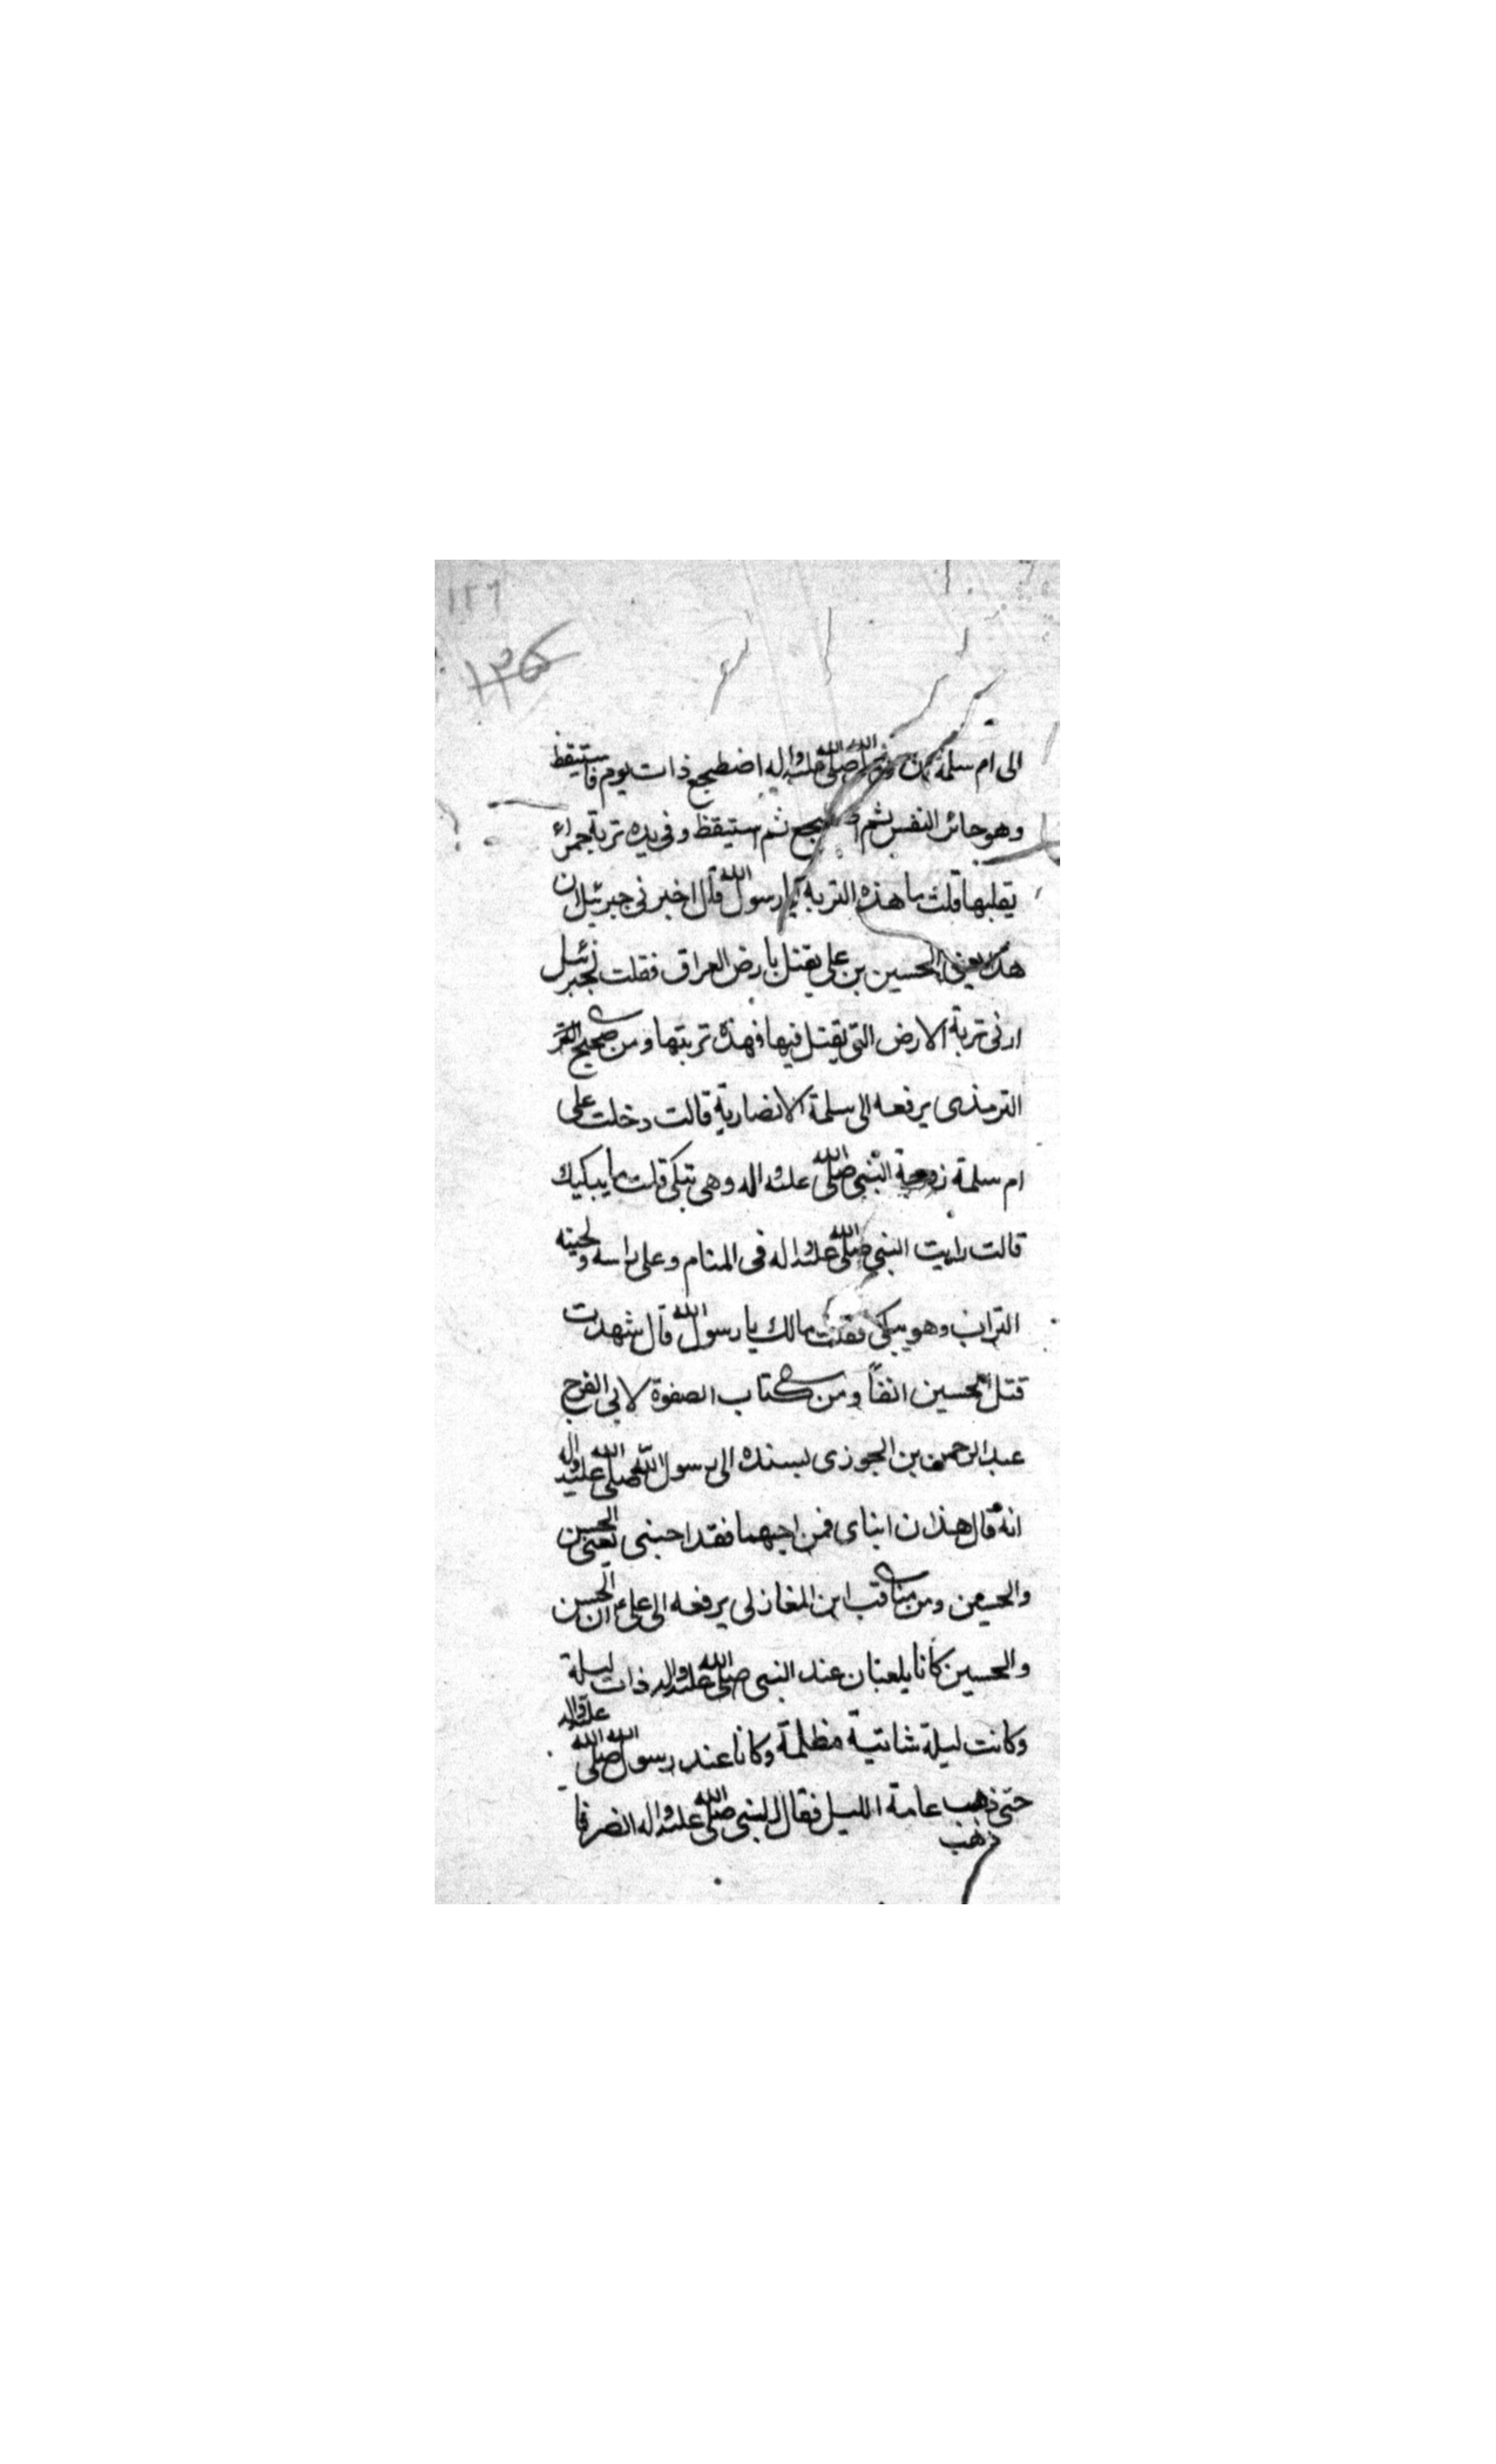 ١٢٦
١٣٥
الى ام سلمة ان رسول الله صلى الله عليه واله اضطجع ذات يوم فاستيقظ
وهو حائر النفس ثم اضطجع ثم استيقظ وفى يده تربة حمراء
يقلبها قلت ما هذه التربة يا رسول الله قال اخبرنى جبرئيل ان
هذا يعنى الحسين بن على يقتل بارض العراق فقلت لجبرئيل
ارنى تربة الارض التى يقتل فيها فهذه تربتها ومن صحيح
الترمذى يرفعه الى سلمة الانصارية قالت دخلت على
ام سلمة زوجة النبى صلى الله عليه واله وهى تبكى قلت ما يبكيك
قالت رايت النبى صلى الله عليه واله فى المنام وعلى راسه ولحيته
التراب وهو يبكى فقلت مالك يا رسول الله قال شهدت
قتل الحسين انفاً ومن كتاب الصفوة لابى الفرج
عبد الرحمن بن الجوزى بسنده الى رسول الله صلى الله عليه واله
انه قال هذان ابناى فمن احبهما فقد احبنى يعنى الحسن
والحسين ومن مناقب ابن المغازلى يرفعه الى على ع ان الحسن
والحسين كانا يلعبان عند النبى صلى الله عليه واله ذات ليلة
وكانت ليلة شاتية مظلمة وكانا عند رسول الله صلى الله عليه واله
حتى ذهب عامة الليل فقال النبى صلى الله عليه واله انصرفا
ذهب